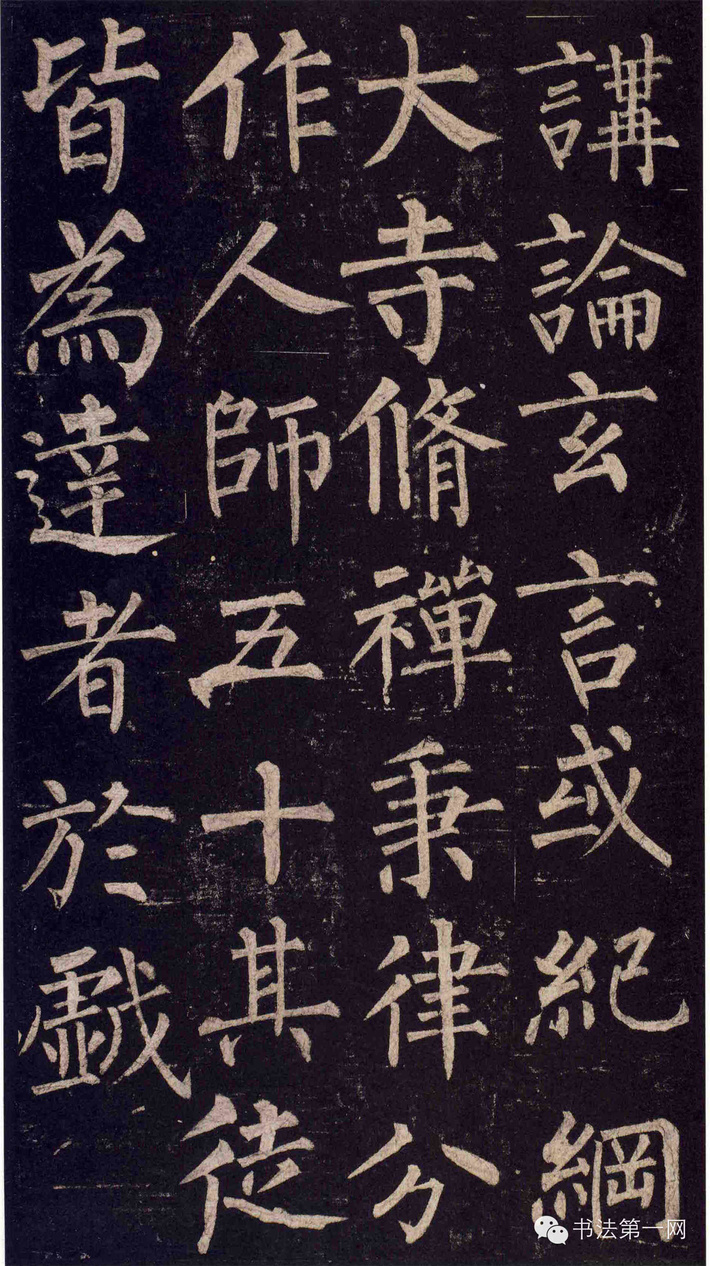 講論玄言或紀綱
大寺脩禪秉律分
作人師五十其徒
皆為達者於戲
书法第一网